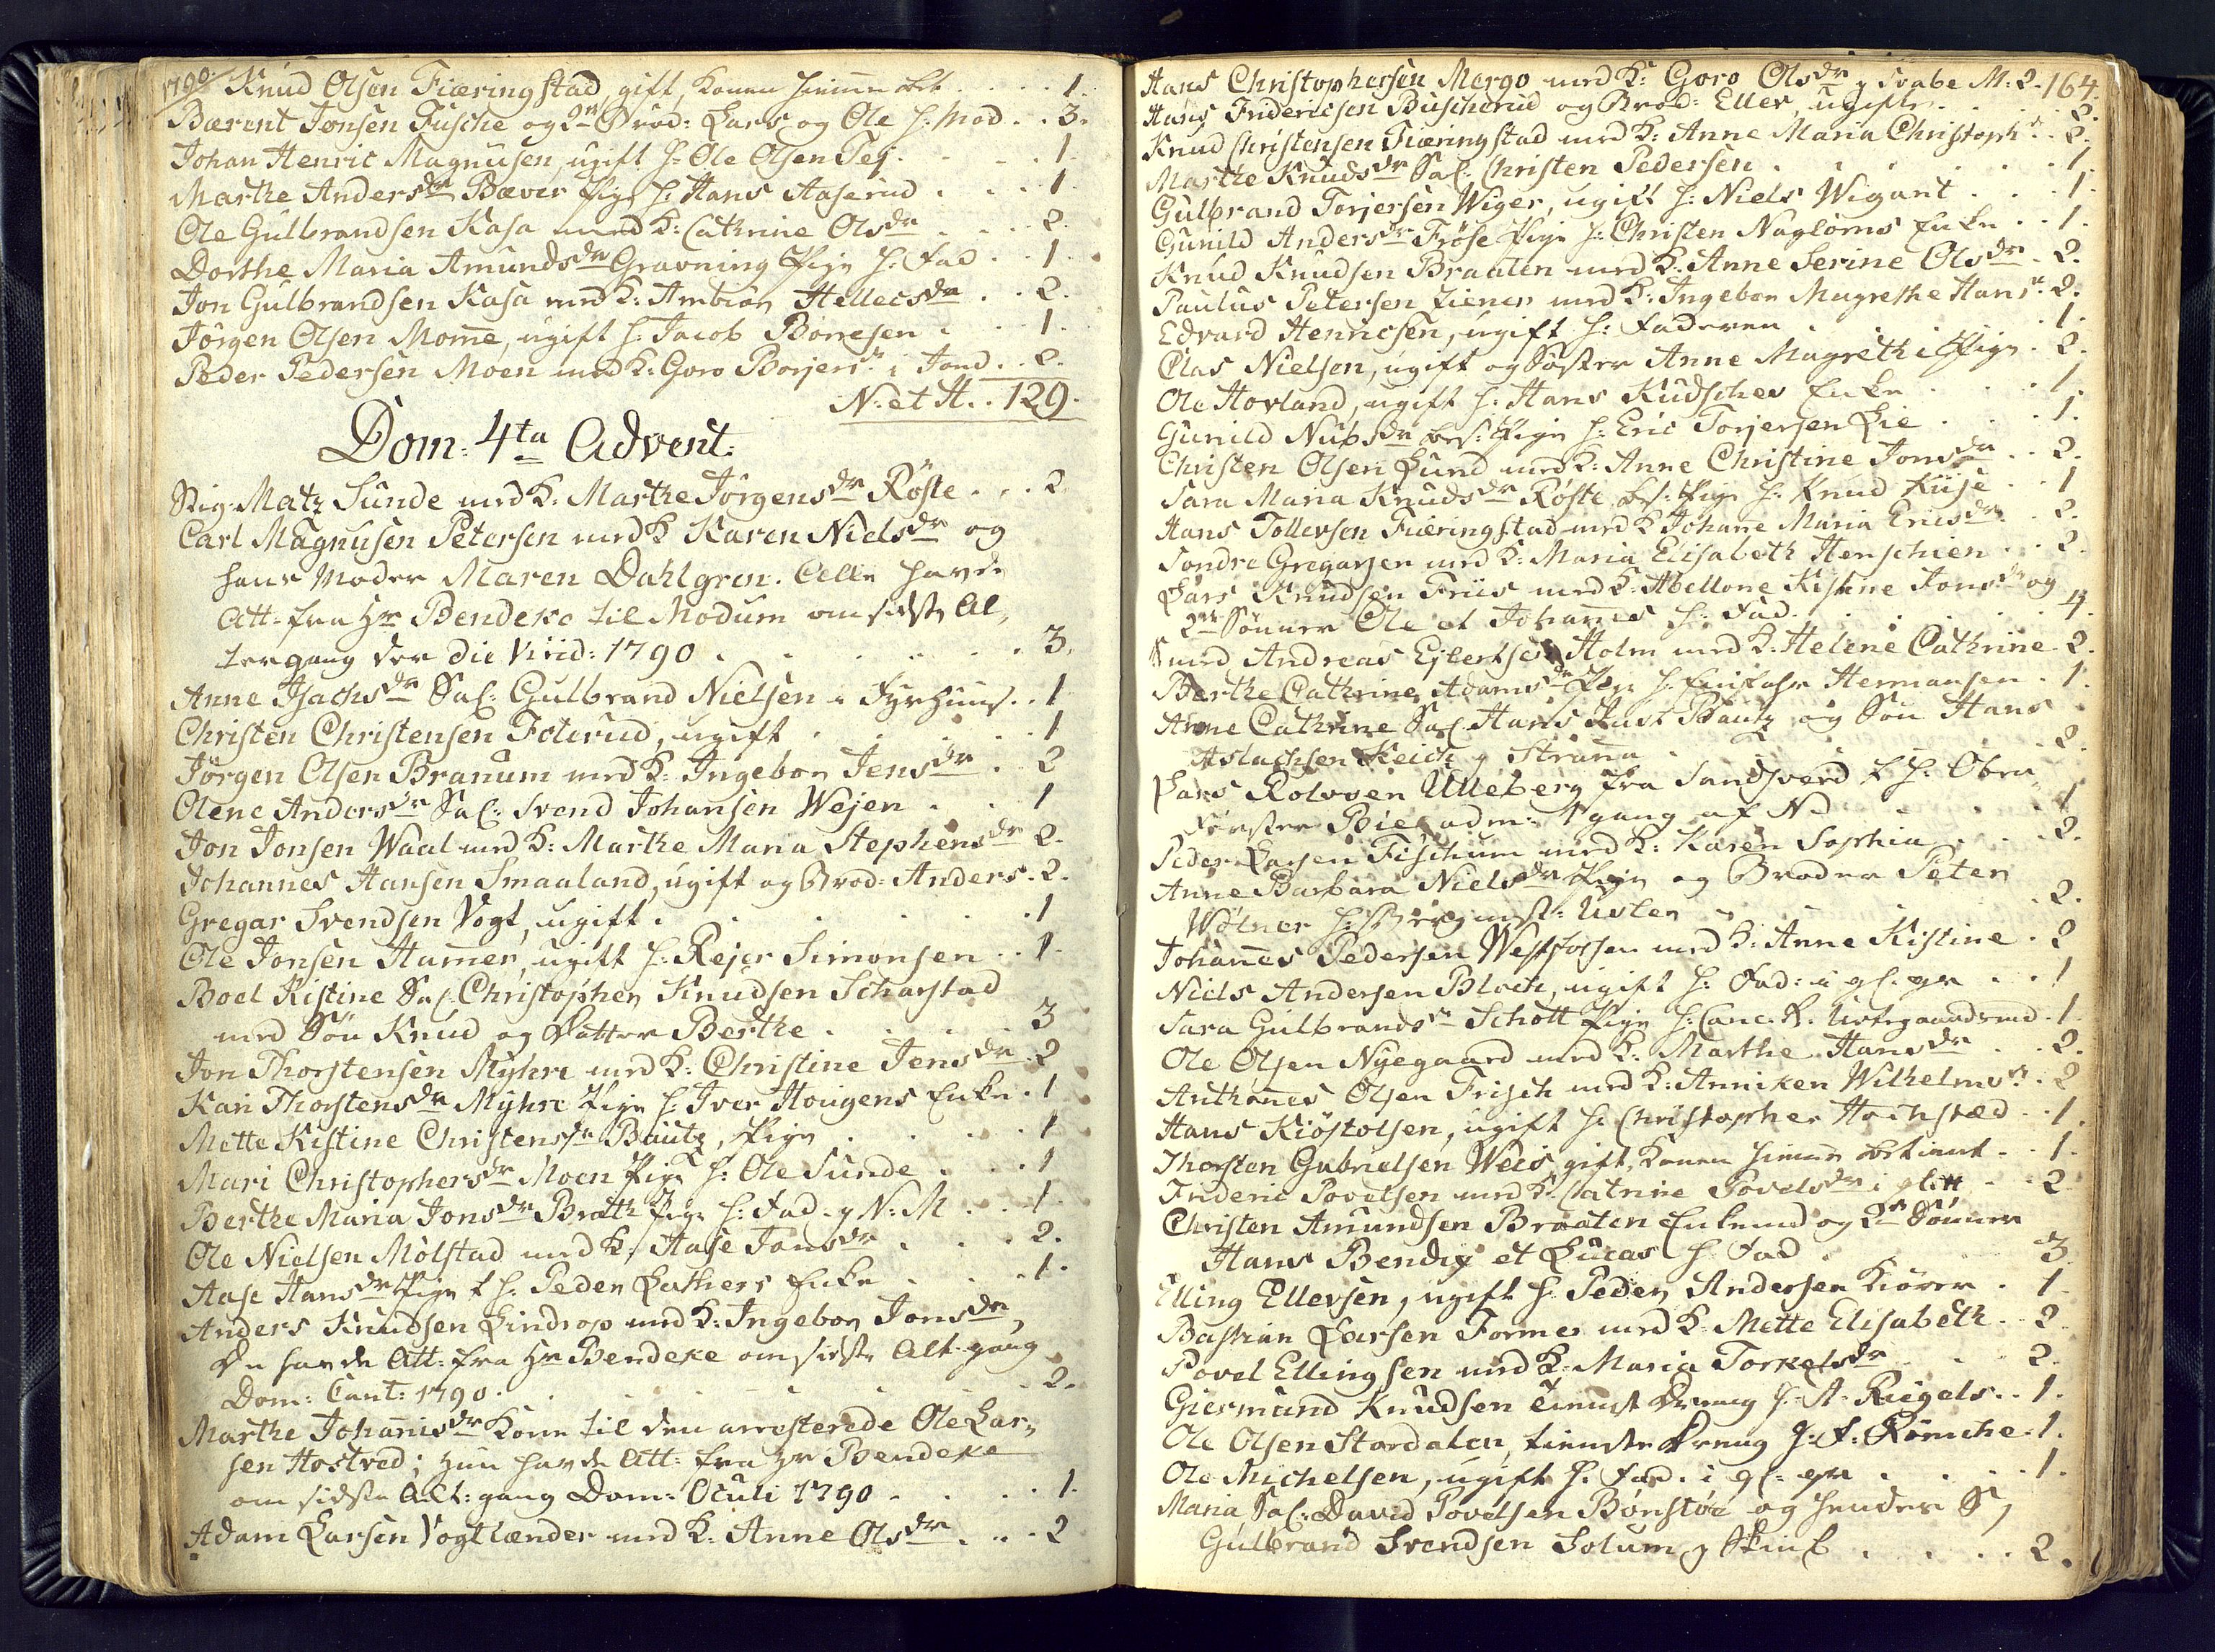 1790. Knud Olsen Fiæringstad, gift, Konen hiemme bet . . . . 1.
Bærent Jonsen Fusche og 2de Brød: Lars og Ole h: Mod . . 3.
Johan Henric Magnusen, ugift h: Ole Olsen Tej . . . . 1.
Marthe Andersdr Bæver Pige h: Hans Aaserud . . . 1.
Ole Gulbrandsen Kasa med K: Cathrine Olsdr . . . . 2.
Dorthe Maria Amundsdr Gravning Pige h: Fad . . 1.
Jon Gulbrandsen Kasa med K: Ambior Hellecsdr . . 2.
Jörgen Olsen Mome, ugift h: Jacob Börresen . . . 1.
Peder Pedersen Moen med K: Goro Borjersdr i Jond . . 2.
N. et H. . 129.
Dom: 4ta Advent:
Sig: Matz Sunde med K: Marthe Jörgensdr Röste . . . 2
Carl Magnusen Petersen med K Karen Nielsdr og
hans Moder Maren Dahlgren. Alle havde
Att: fra Hr Bendeke til Modum om sidste Al-
tergang der die Viid: 1790 . . . . . . 3.
Anne Isachsdr Sal: Gulbrand Nielsen i Fyrhuus . . 1
Christen Christensen Foterud, ugift . . . . . 1
Jörgen Olsen Branum med K: Ingebor Jensdr . 2
Olene Andersdr Sal: Svend Johansen Wejen . . 1
Jon Jonsen Waal med K: Marthe Maria Stephensdr 2.
Johannes Hansen Smaaland, ugift og Brod: Anders . 2.
Gregar Svendsen Vogt, ugift . . . . . . 1
Ole Jonsen Hamer, ugift h: Rejer Simonsen . . 1.
Boel Kistine Sal: Christopher Knudsen Scharstad
med Sön Knud og Datter Berthe . . . . . 3
Jon Thorstensen Myhre med K: Christine Jensdr . 2
Kari Thorstensdr Myhre Pige h: Iver Hougens Enke . 1
Mette Kistine Christensdr Bautz, Pige . . . . 1
Mari Christophersdr Moen Pige h: Ole Sunde . . . 1
Berthe Maria Jonsdr Bratt Pige h: Fad. y N: M . . 1.
Ole Nielsen Mölstad med K: Aase Jansdr . . . 2.
Aase Hansdr Pige t h: Peder Lathers Enke . . . 1.
Anders Knudsen Lindrop med K: Ingebor Jonsdr,
De havde Att: fra Hr Bendeke om sidste Alt: gang
Dom: Cant: 1790 . . . . . . . 2.
Marthe Johanisdr Kone til den arresterede Ole Lar-
sen Hostved; hun havde Att: fra Hr Bendeke
om sidste Alt: gang Dom: Oculi 1790 . . . . 1.
Adam Larsen Vogtlænder med K: Anne Olsdr . . . 2
164.
Hans Christophersen Mergo med K: Goro Olsdr y Svabe M: 2.
Hans Fridericsen Buscherud og Brod: Ellev, ugifte . . . 2.
Knud Christensen Fiæringstad med K: Anne Maria Christophdr . 2.
Marthe Knudsdr Sal: Christen Pedersen . . . . . 1
Gulbrand Torjersen Wiger, ugift h: Niels Wigant . . . 1.
Gunild Andersdr Fröse Pige h: Christen Naglörns Enke . . 1.
Knud Knudsen Braaten med K: Anne Serine Olsdr . 2.
Paulus Petersen tiener med K: Ingebor Magrethe Hansdr . 2.
Edvard Henricsen, ugift h: Faderen . . . . 1.
Clas Nielsen, ugift og Söster Anne Magrethe Pige . 2.
Ole Hovland, ugift h: Hans Kudsches Enke . . . . 1.
Gunild Nubsdr bes: Pige h: Eric Torjersen Lie . . . 1.
Christen Olsen Lund med K: Anne Christine Jonsdr . . 2.
Sara Maria Knudsdr Röste bes: Pige h: Knud Kiise . . 1
Hans Tollevsen Fiæringstad med K Johanne Maria Ericsdr . 2.
Sondre Gregarsen med K: Maria Elisabeth Henschien . . 2.
Lars Knudsen Friis med K: Abellone Kistine Jonsdr og
2de Sönner Ole et Johannes h: Fad. . . . . . 4.
Smed Andreas Ejlertsen Holm med K: Helene Cathrine . 2.
Berthe Cathrine Adamsdr Pige h: Hermansen . 1.
Anne Cathrine Sal: Hans Just Bautz og Sön Hans
Aslachsen Keich y Ströma . . . . . . 2.
Lars Rolvsen Ulleberg fra Sandsverd t h: Ober
Forster Bie adm: 1 gang af N . . . . . 1
Peder Larsen Fischum med K: Karen Sophia . . . 2.
Anne Barbara Nielsdr Pige og Broder Peter
Wölner h: Bergmst: Uslen . . . . . 2.
Johannes Pedersen Westfossen med K: Anne Kistine . 2
Niels Andersen Bloch, ugift h: Fad: i gl: gr . . 1
Sara Gulbrandsdr Schott Pige h: Canc. R. . 1.
Ole Olsen Nyegaard med K: Marthe Hansdr . . 2.
Anthones Olsen Frisch med K: Anniken Wilhelmsdr . 2
Hans Kiöstolsen, ugift h: Christopher Hochstæd . . 1.
Thorsten Gabrielsen Weis, gift, Konen hiemme betient . . 1.
Frideric Povelsen med K: Catrine Povelsdr i . . 2
Christen Amundsen Braaten Enkemd og 2de Sönner
Hans Bendix et Lucas h: Fad . . . . . 3.
Elling Ellevsen, ugift h: Peder Andersen Kiörer . 1.
Bastian Larsen Former med K: Mette Elisabeth . . 2.
Povel Ellingsen med K: Maria Torkelsdr . . . 2.
Giermund Knudsen tieneste Dreng h: A. Riegels . . 1.
Ole Olsen Stordalen, tieneste Dreng h: F. Römche . 1.
Ole Michelsen, ugift h: Fad. i gl: gr . . . . 1.
Maria Sal: David Povelsen Bönstöe og hendes S,
Gulbrand Svendsen Solum y . . . . 2.